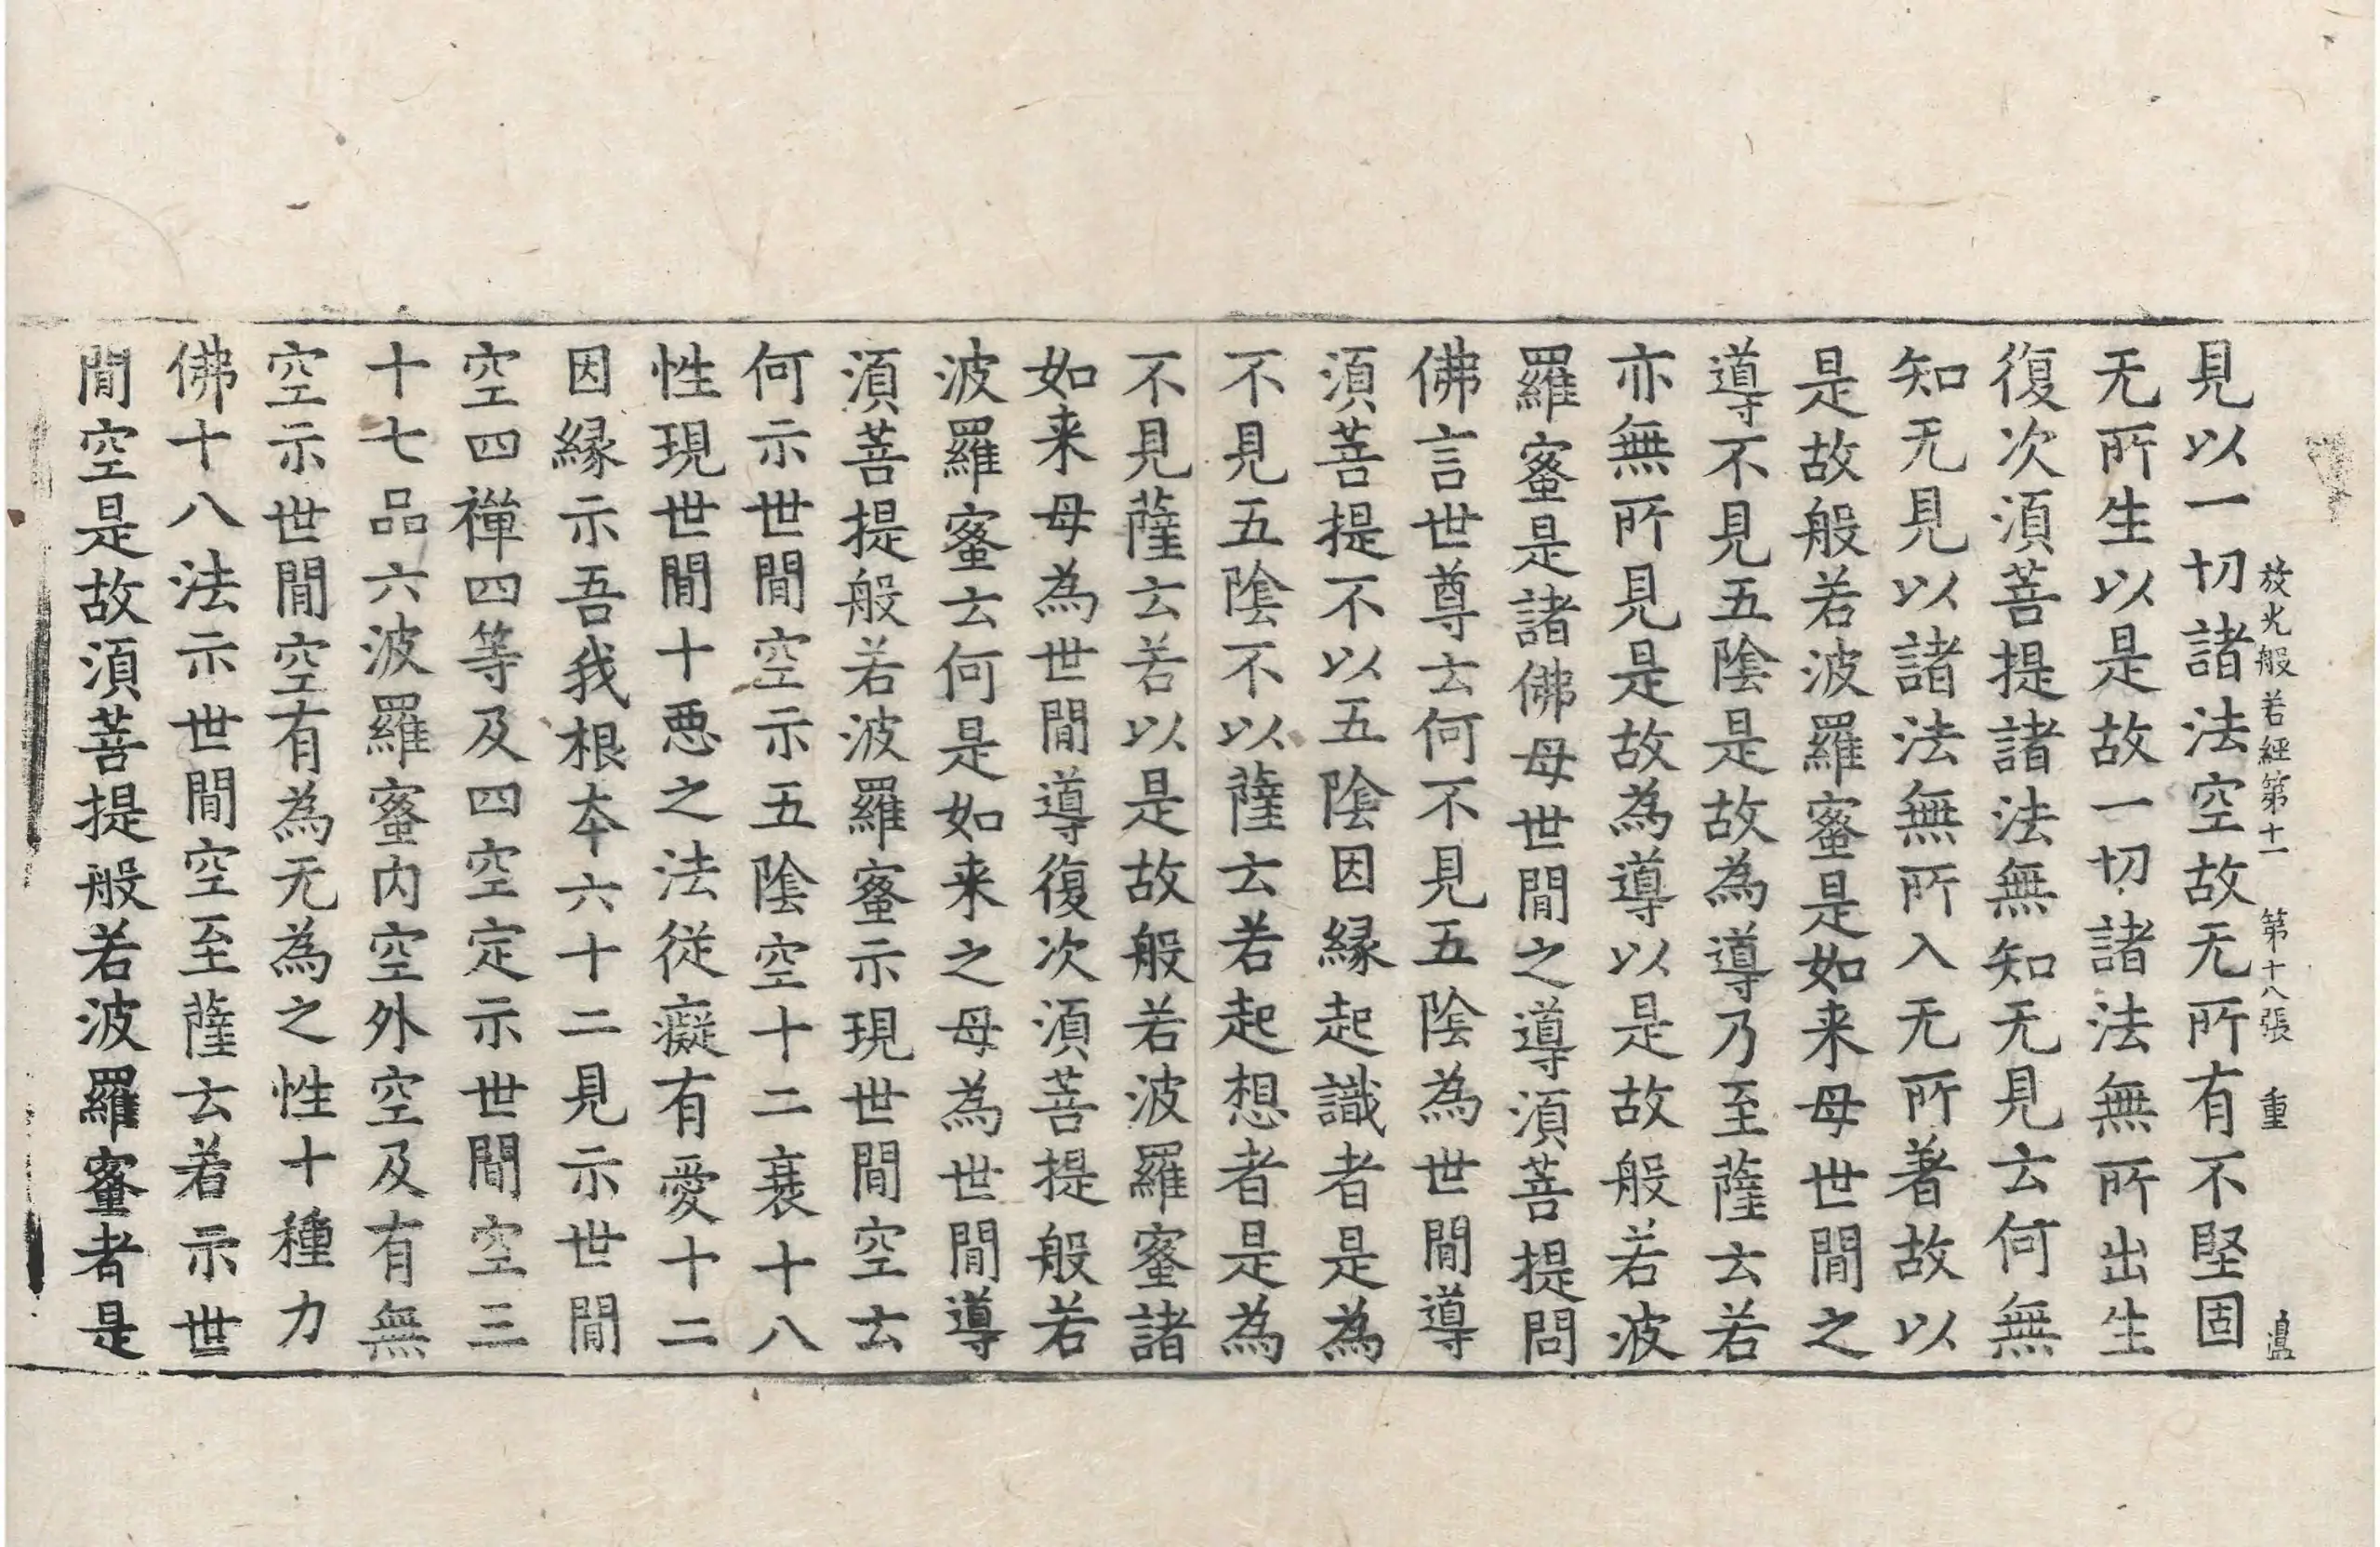 放光般若經第十一 第十八張 重
見以一切諸法空故无所有不堅固
无所生以是故一切諸法無所出生
復次湏菩提諸法無知无見云何無
知无見以諸法無所入无所著故以
是故般若波羅蜜是如来母世閒之
導不見五陰是故為導乃至薩云若
亦無所見是故為導以是故般若波
羅蜜是諸佛母世閒之導湏菩提問
佛言世尊云何不見五陰為世閒導
湏菩提不以五陰因緣起識者是為
不見五陰不以薩云若起想者是為
不見薩云若以是故般若波羅蜜諸
如来母為世閒導復次湏菩提般若
波羅蜜云何是如来之母為世閒導
湏菩提般若波羅蜜示現世閒空云
何示世閒空示五陰空十二衰十八
性現世閒十惡之法從癡有愛十二
因緣示吾我根本六十二見示世閒
空四禪四等及四空定示世閒空三
十七品六波羅蜜内空外空及有無
空示世閒空有為无為之性十種力
佛十八法示世閒空至薩云若示世
閒空是故湏菩提般若波羅蜜者是